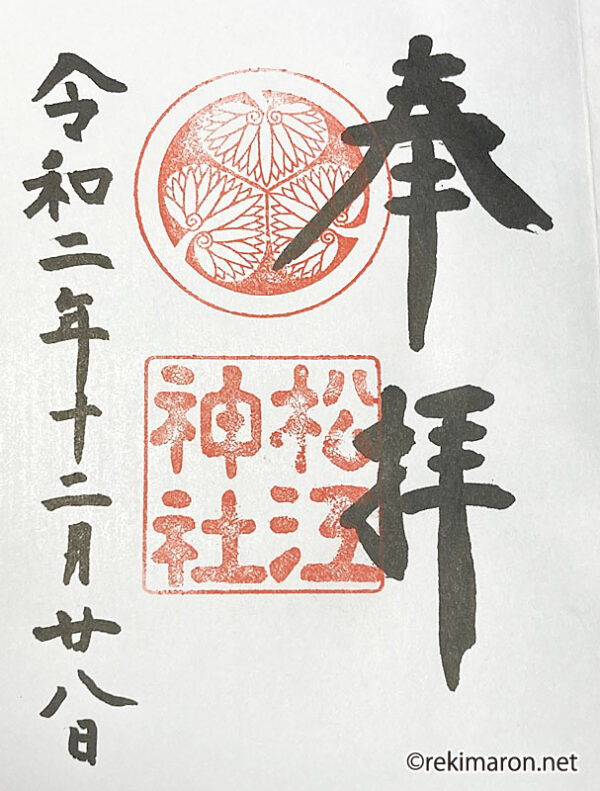 奉拝
松江
神社
令和二年十二月廿八日
©rekimaron.net